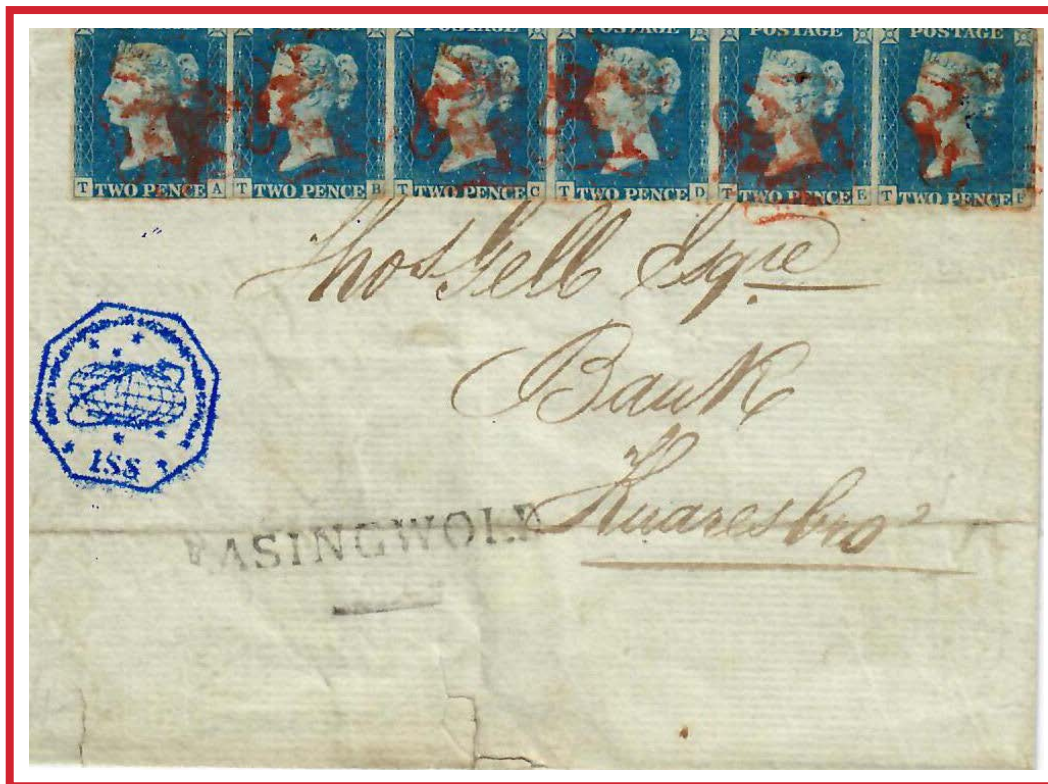 POSTAGE POSTAGE
T TWO PENCE A T TWO PENCE B T TWO PENCE C T TWO PENCE D T TWO PENCE E T TWO PENCE F
Thos Gell Esqre
Bank
Knaresbro'
ISS
EASINGWOLD